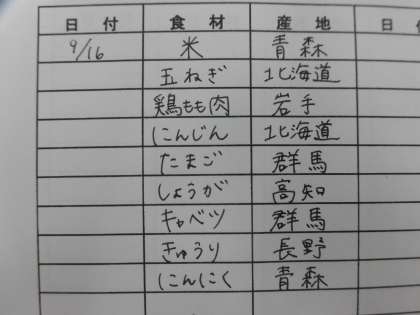 日付 食材 産地 日
9/16 米 青森
玉ねぎ 北海道
鶏もも肉 岩手
にんじん 北海道
たまご 群馬
しょうが 高知
キャベツ 群馬
きゅうり 長野
にんにく 青森